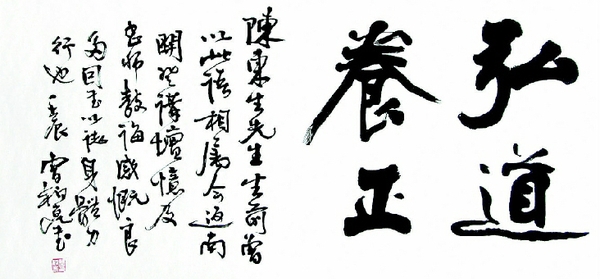 弘道
養正
陳東生先生生前曾
以此語相屬今返南
開登講壇憶及
師教誨感慨良
多因書以誌身體力
行也 壬辰 書